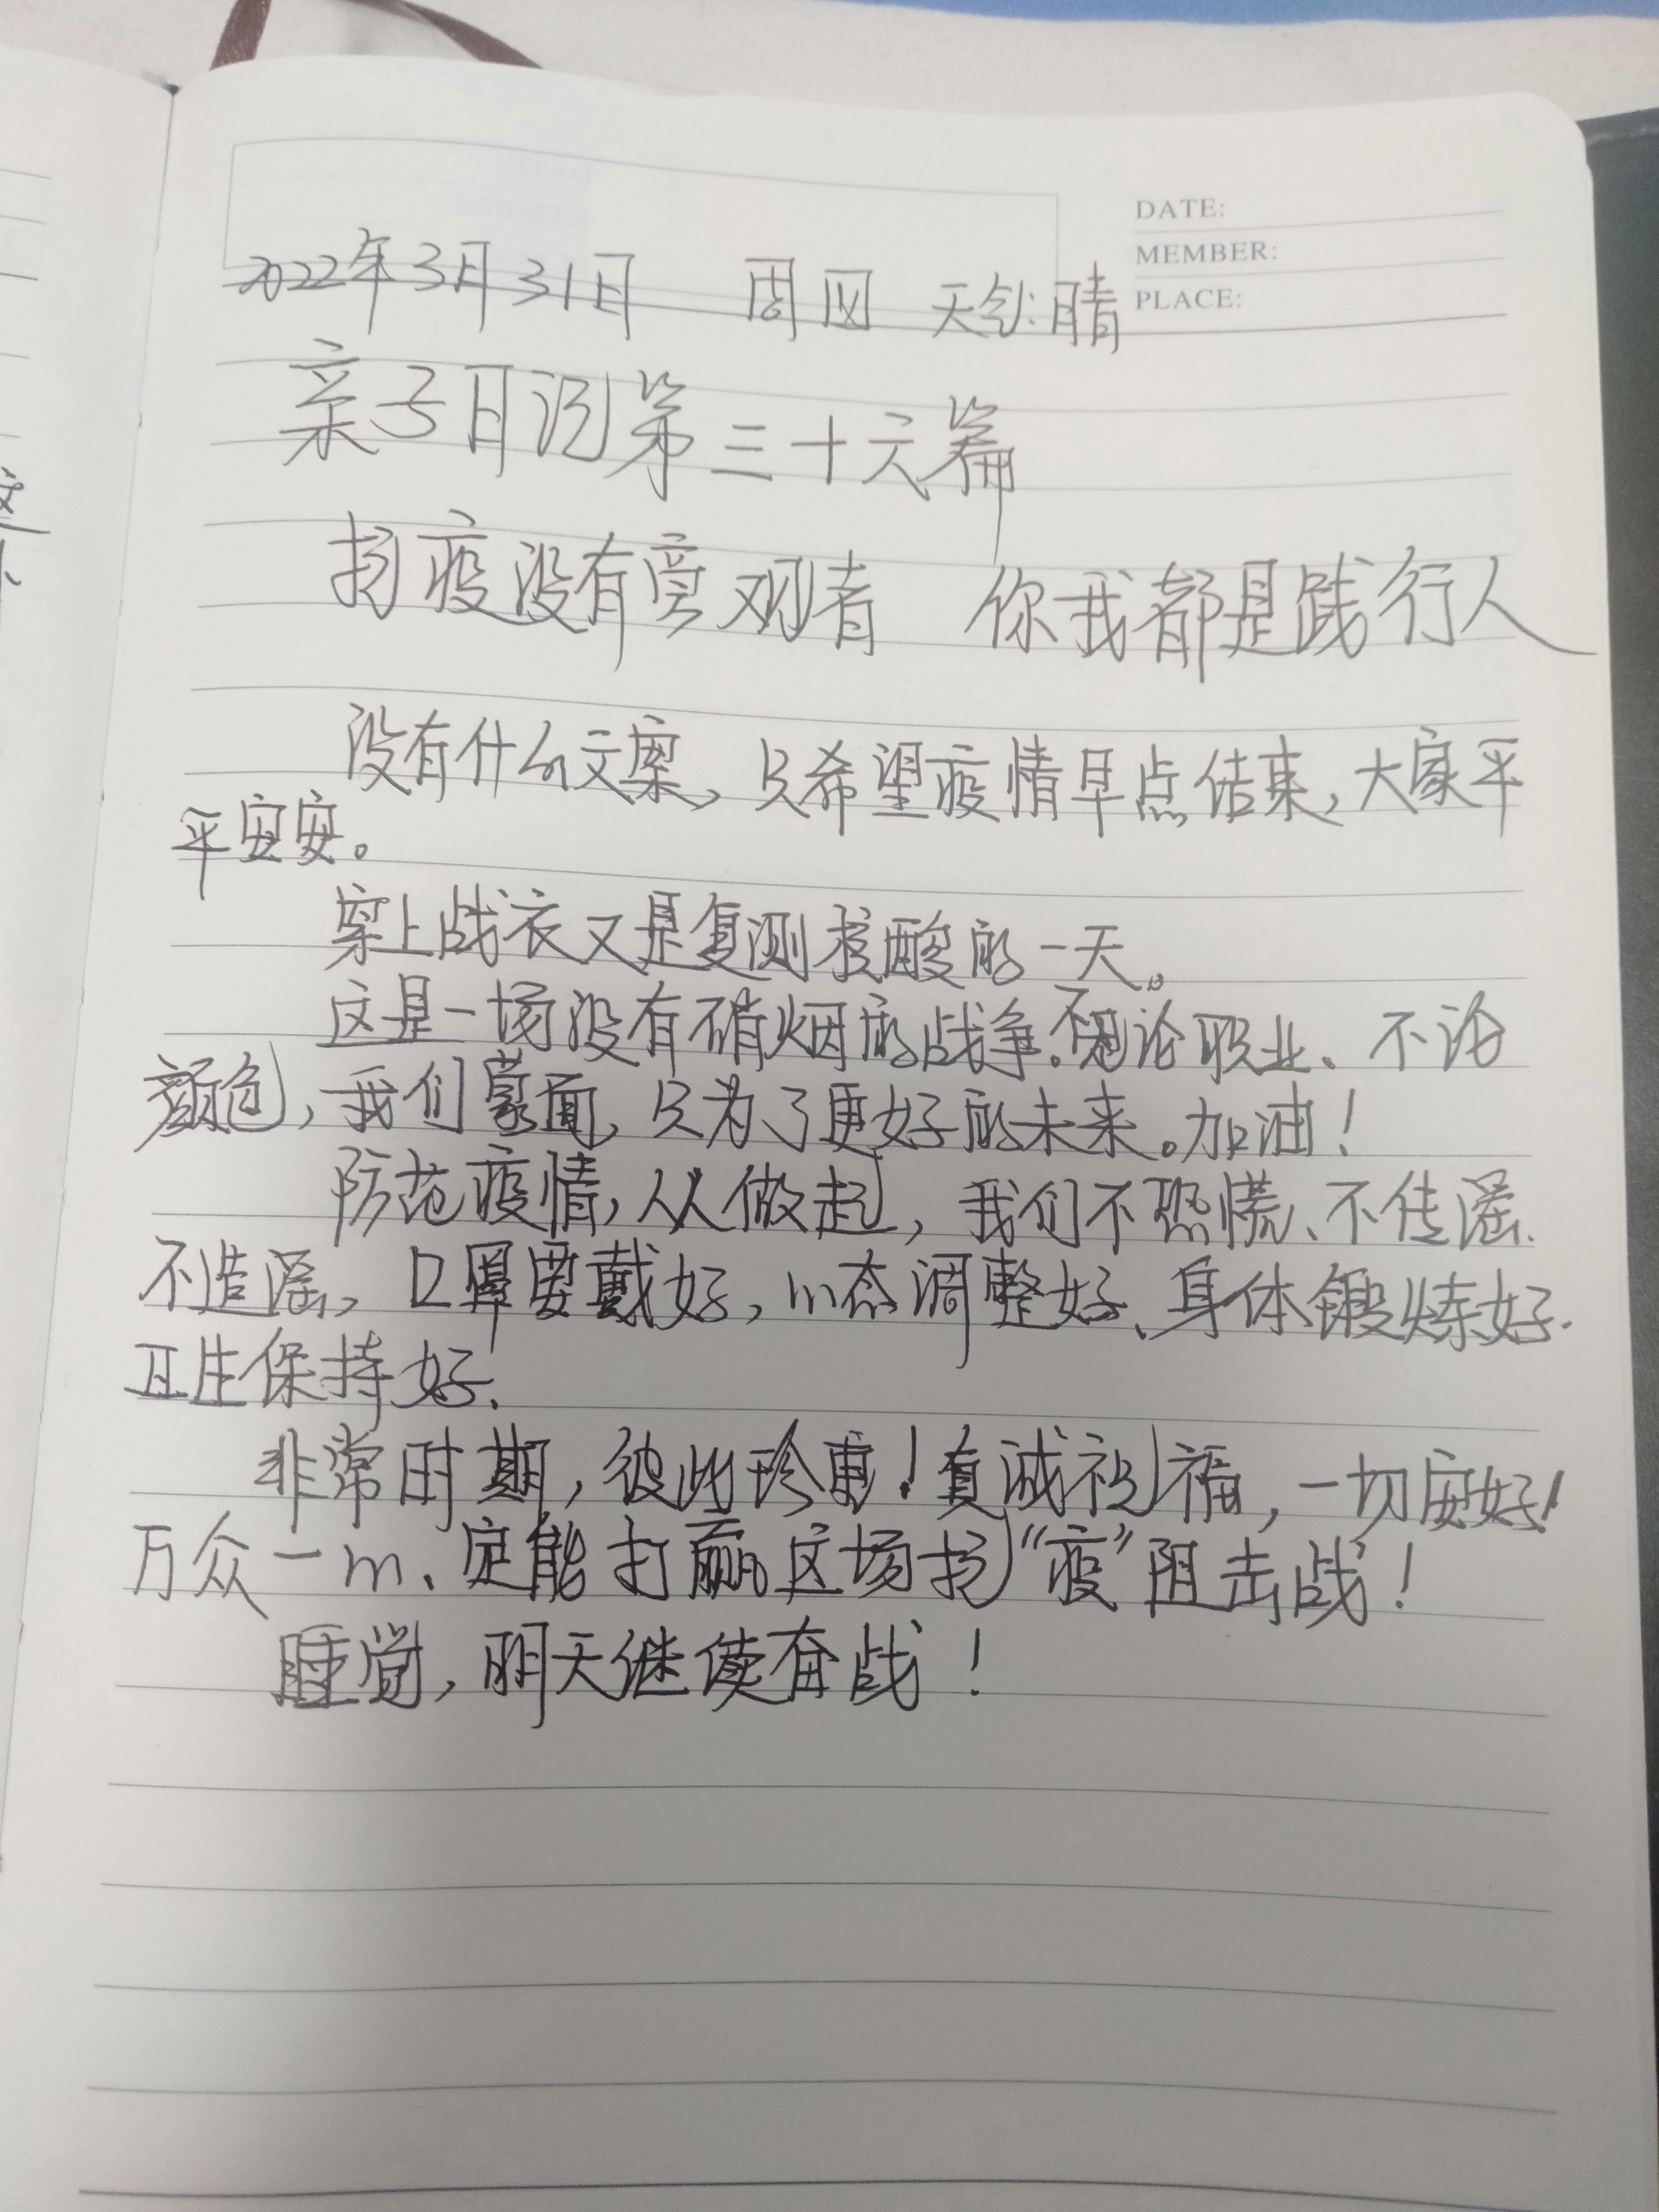 DATE:
MEMBER:
PLACE:
2022年3月31日 周四 天气:晴
亲子日记第三十六篇
抗疫没有旁观者 你我都是践行人
没有什么文案,只希望疫情早点结束,大家平
平安安。
穿上战衣又是复测核酸的一天。
这是一场没有硝烟的战争。不论职业、不论
颜色,我们蒙面,只为了更好的未来。加油!
防范疫情,从从做起,我们不恐慌、不传谣、
不造谣,口罩要戴好,心态调整好、身体锻炼好.
卫生保持好.
非常时期,彼此珍重!真诚祝福,一切安好!
万众一心、定能打赢这场抗“疫”阻击战!
睡觉,明天继续奋战!